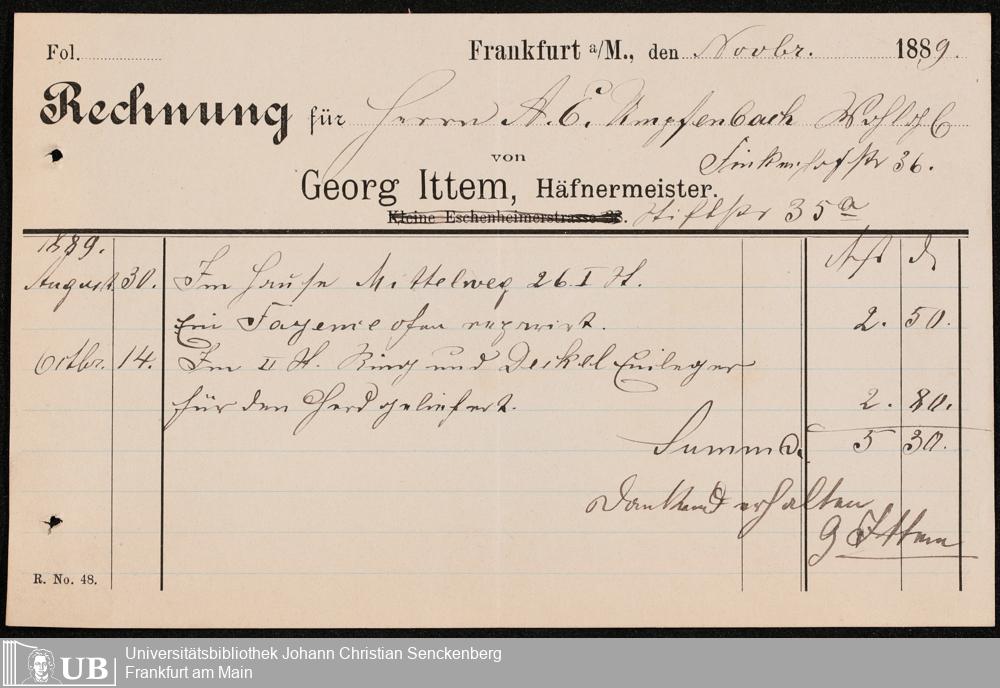 Fol.
Frankfurt a/M., den Novbr. 1889.
Rechnung für Herrn A. E. Umpfenbach Wohlgb
Finkenhofstr 36.
von
Georg Ittem, Häfnermeister.
Kleine Eschenheimerstrasse Stiftstr 35a
1889.
August 30. Im Hause Mittelweg 26 I St.
Ein Fayence ofen reparirt. 2. 50.
Octbr. 14. Im II St. Ring und Deckel Einleger
für den Herd geliefert. 2. 80.
Summa. 5 30.
Dankend erhalten
G Ittem
R. No. 48.
UB
Universitätsbibliothek Johann Christian Senckenberg
Frankfurt am Main